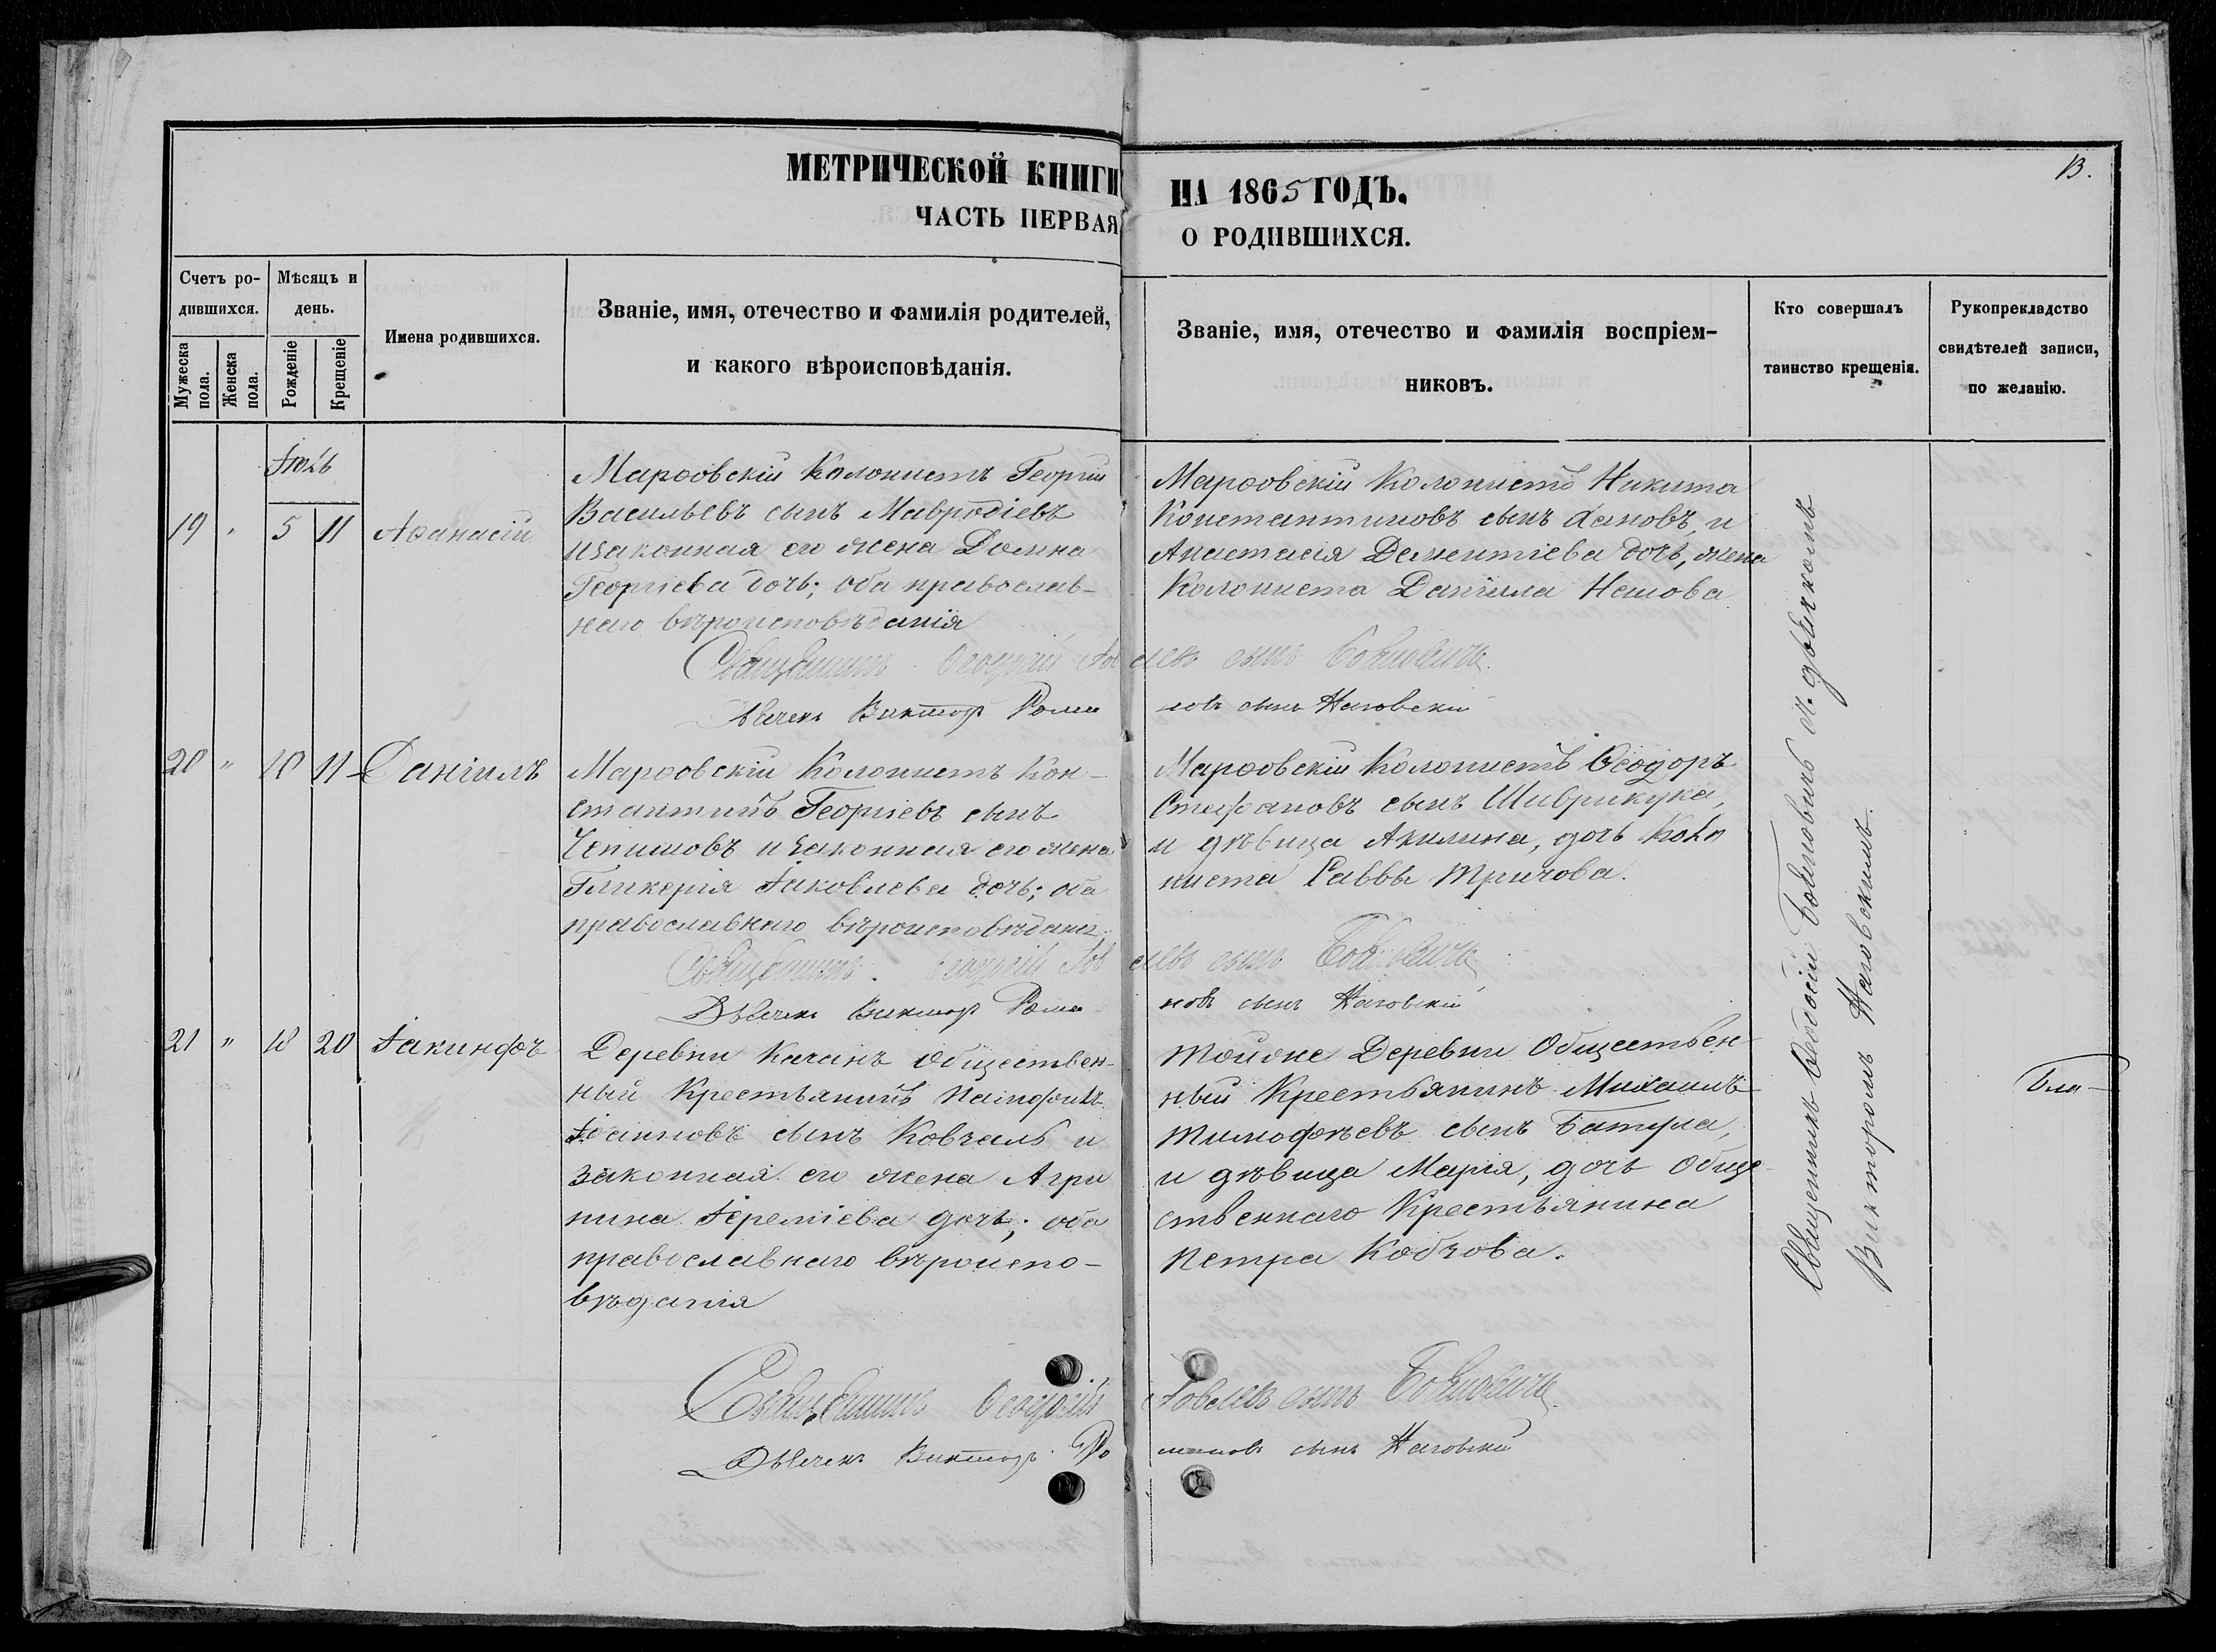 МЕТРИЧЕСКОЙ КНИГИ НА 1865 ГОДЪ.
ЧАСТЬ ПЕРВАЯ О РОДИВШИХСЯ.
Счетъ ро-
дившихся.
Мужеска пола.
Женска пола.
Мѣсяцъ и
день.
Рожденіе
Крещеніе
Имена родившихся.
Званіе, имя, отечество и фамилія родителей,
и какого вѣроисповѣданія.
Званіе, имя, отечество и фамилія воспріем-
никовъ.
Кто совершалъ
таинство крещенія.
Рукоприкладство
свидѣтелей записи,
по желанію.
Іюль
19 " 5 11 Аѳанасій
Марѳовскій Колонистъ Георгій
Васильевъ сынъ Мавродіевъ
и законная его жена Домна
Георгіева дочь; оба православ-
наго вѣроисповѣданія
Марѳовскій Колонистъ Никита
Константиновъ сынъ и
Анастасія Дементіева дочь, жена
Колониста Даніила
Священникъ Ѳеодосій сынъ
Дьячекъ Викторъ Романовъ сынъ
20 " 10 11 Даніилъ
Марѳовскій Колонистъ Кон-
стантинъ Георгіевъ сынъ
и законная его жена
Гликерія Іаковлева дочь; оба
православнаго
Марѳовскій Колонистъ Ѳеодоръ
Стефановъ сынъ Шиврикука,
и дѣвица Акилина, дочь Коло
ниста Саввы Тричова.
Священникъ Ѳеодосій сынъ
Дьячекъ Викторъ Романовъ сынъ
21 " 18 20 Іакинфъ
Деревни Общественный
Крестьянинъ
Іоанновъ сынъ и
законная его жена Агри
пина Іереміева дочь; оба
православнаго вѣроиспо-
вѣданія
Тойже Деревни Обществен
ный Крестьянинъ Михаилъ
Тимофѣевъ сынъ Батула,
и дѣвица Марія, дочь Обще
ственнаго Крестьянина
Петра Кобзова.
Священникъ Ѳеодосій сынъ
Дьячекъ Викторъ Романовъ сынъ
Священникъ Ѳеодосій съ дьячкомъ
Викторомъ
Бла-